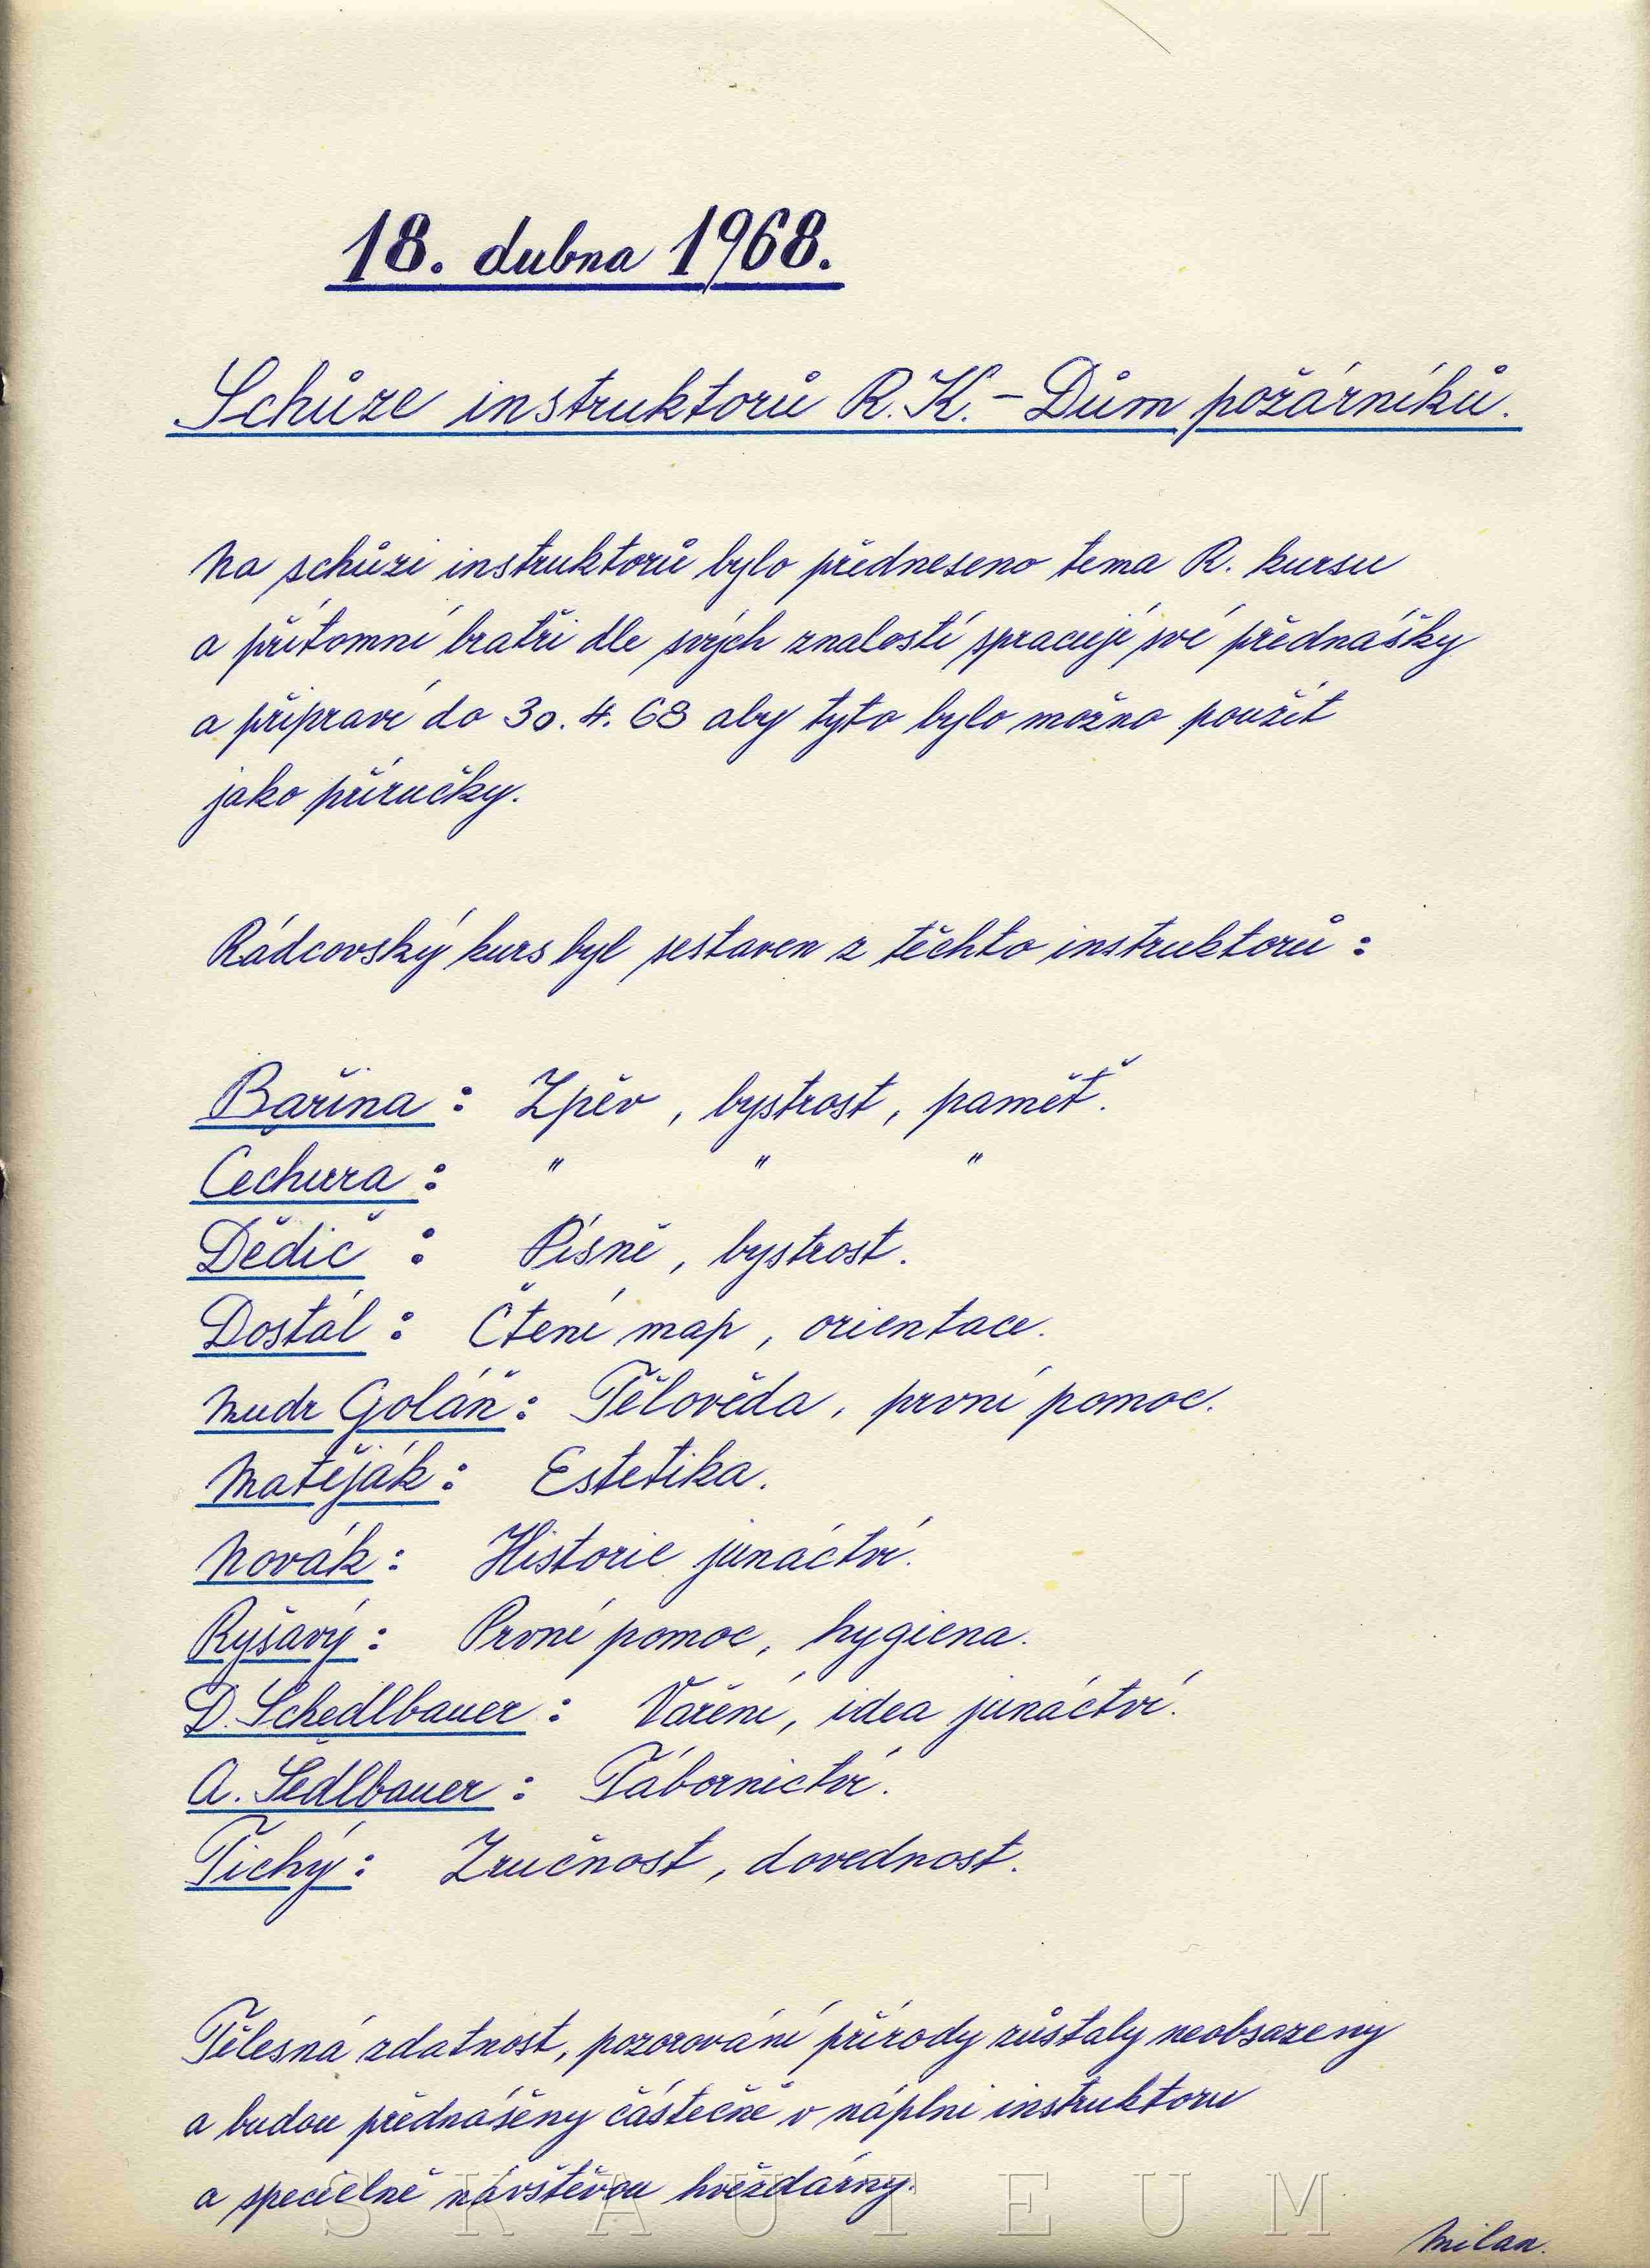 18. dubna 1968.
Schůze instruktorů R.K. – Dům požárníků.
Na schůzi instruktorů bylo předneseno tema R. kursu
a přítomní bratři dle svých znalostí spracují své přednášky
a připraví do 30. 4. 68 aby tyto bylo možno použít
jako příručky.
Rádcovský kurs byl sestaven z těchto instruktorů :
Bařina : Zpěv , bystrost , paměť.
Čechura : " " "
Dědič : Písně , bystrost .
Dostál : Čtení map , orientace .
Mudr Goláň : Tělověda , první pomoc .
Matěják : Estetika .
Novák : Historie junáctví .
Ryšavý : První pomoc , hygiena .
D. Schedlbauer : Vaření , idea junáctví .
A. Šedlbauer : Tábornictví .
Tichý : Zručnost , dovednost .
Tělesná zdatnost , pozorování přírody zůstaly neobsazeny
a budou přednášeny částečně v náplni instruktorů
a specielně návštěvou hvězdárny .
SKAUTEUM
Milan .